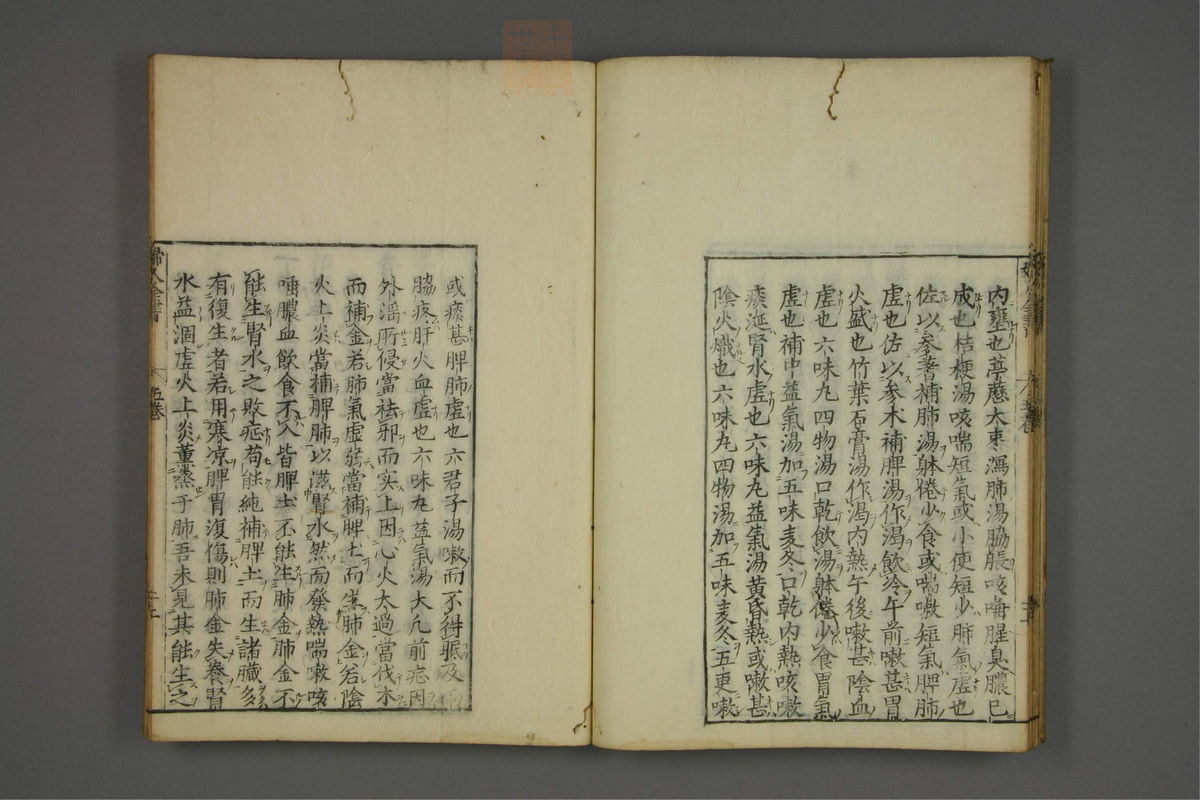 内壅也葶藶大棗瀉肺湯脇脹咳嗽腥臭膿已
成也桔梗湯咳喘短氣或小便短少肺氣虚也
佐以參蓍補肺湯躰倦少食或喘嗽短氣脾肺
虚也佐以参术補脾湯作渴飲冷午前嗽甚胃
火盛也竹葉石膏湯作渴内熱午後嗽甚陰血
虚也六味丸四物湯口乾飲湯躰倦少食胃氣
虚也補中益氣湯加五味麦冬口乾内熱咳嗽
痰涎腎水虚也六味丸益氣湯黄昏熱或嗽甚
陰火熾也六味丸四物湯加五味麦冬五更嗽
或痰甚脾肺虚也六君子湯嗽而不得眠及
脇疼肝火血虚也六味丸益氣湯大凡前症因
外淫所侵當祛邪而实土因心火太過當伐木
而補金若肺氣虚弱當補脾土而生肺金若陰
火上炎當補脾肺以滋腎水然而發熱喘嗽咳
唾膿血飲食不入皆脾土不能生肺金肺金不
能生腎水之敗症苟能純補脾土而生諸臓多
有復生者若用寒凉脾胃復傷則肺金失養腎
水益涸虚火上炎薫蒸于肺吾未見其能生之
婦人全書
五巻